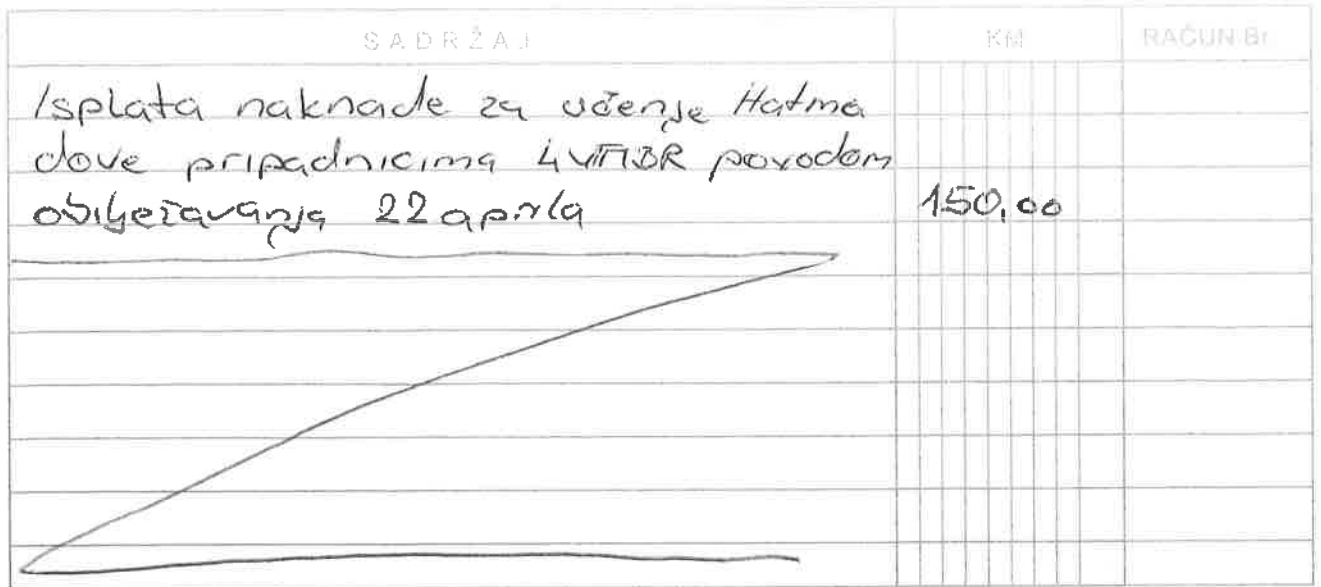 SADRŽAJ KM RAČUN Br.
Isplata naknade za učenje Hatma
dove pripadnicima 4 VMBR povodom
obilježavanja 22 aprila 150,00